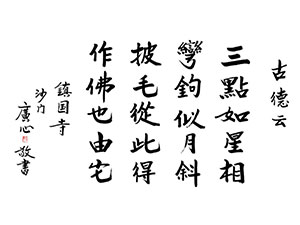 古德云
三點如星相
彎鉤似月斜
披毛從此得
作佛也由它
鎮国寺
沙门
廣心敬書